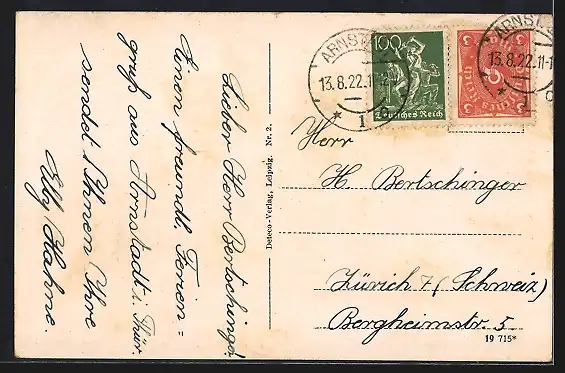 Lieber Herr Bertschinger!
Einen freundl. Ferien=
gruß aus Arnstadt i. Thür.
sendet Ihnen Ihre
Elly Hahne.
Deteco-Verlag, Leipzig. Nr. 2.
ARNST
13.8.22.11-1
* 1
100
Deutsches Reich
ARNST
13.8.22.11-1
Deutsches Reich
3
Herrn
H. Bertschinger
Zürich 7 (Schweiz)
Bergheimstr. 5
19 715*